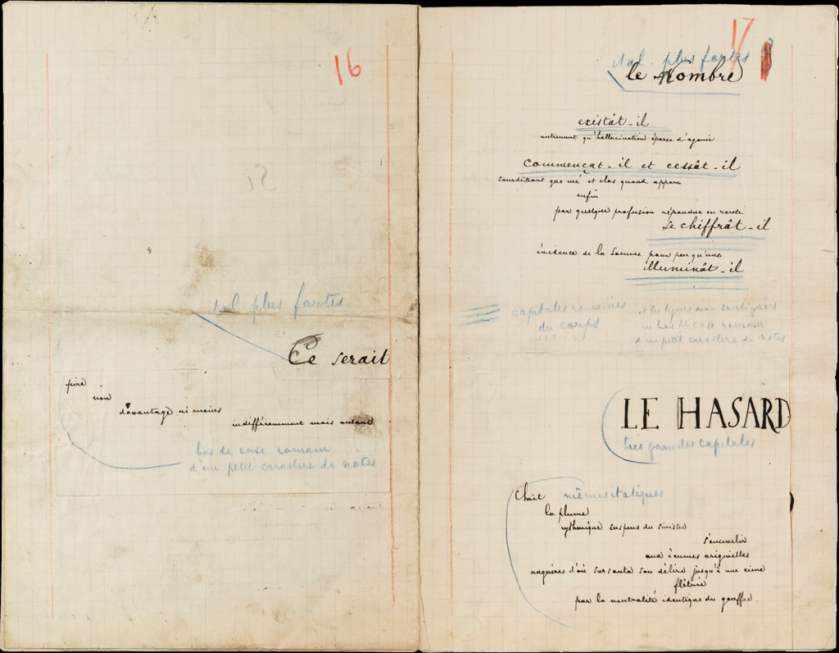 16
ital. plus fortes
Ce serait
pire
non
davantage ni moins
indifféremment mais autant
bas de case romain
d'un petit caractère de notes
17
ital. plus fortes
le Nombre
existât-il
autrement qu'hallucination éparse d'agonie
commençât-il et cessât-il
sourdant que nié et clos quand apparu
enfin
par quelque profusion répandue en rareté
se chiffrât-il
évidence de la somme pour peu qu'une
illuminât-il
capitales romaines
du corps
et les lignes non soulignées
en bas de case romain
d'un petit caractère de notes
LE HASARD
très grandes capitales
Choit
mêmes italiques
la plume
rythmique suspens du sinistre
s'ensevelir
aux écumes originelles
naguères d'où sursauta son délire jusqu'à une cime
flétrie
par la neutralité identique du gouffre